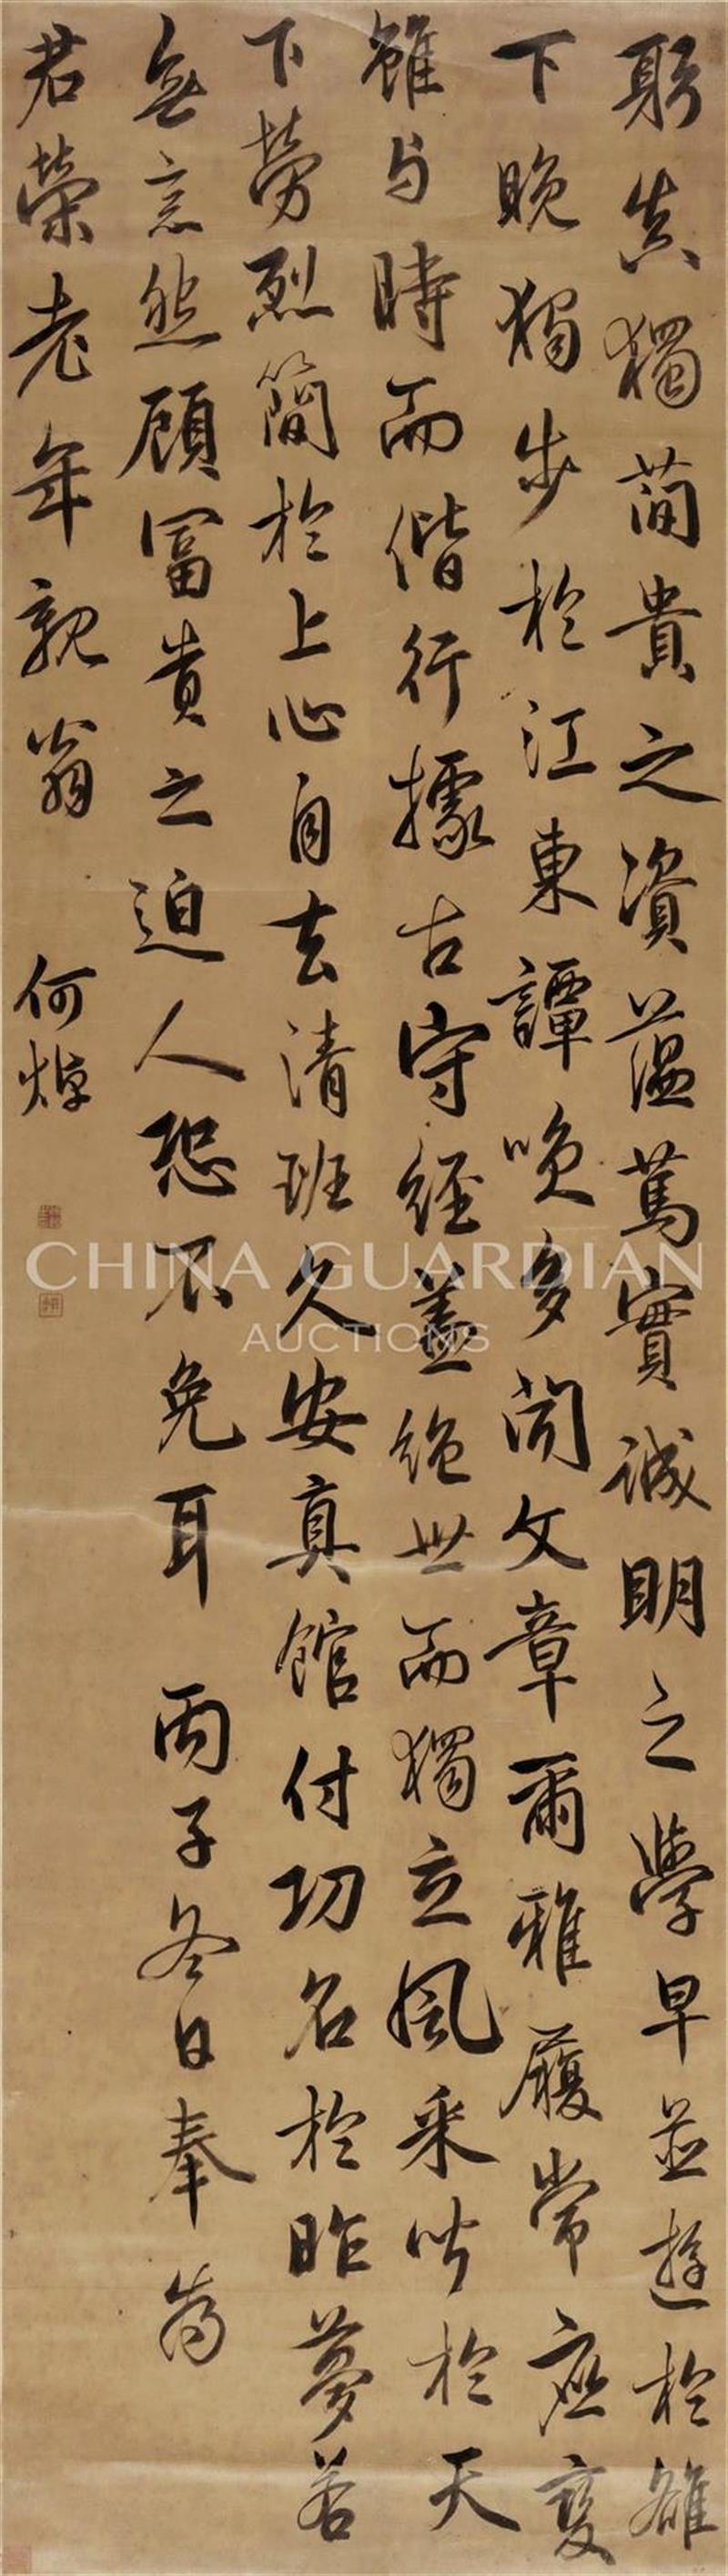 躬真獨簡貴之資蘊篤實誠明之學早並遊於雒
下晚獨步於江東譚噱多聞文章爾雅履常應變
雖与時而偕行據古守經蓋絶世而獨立風采皆於天
下勞烈簡於上心自去清班久安真館付功名於昨夢若
無意然顧冨貴之迫人恐不免耳 丙子冬日奉為
君榮老年親翁 何焯
CHINA GUARDIAN
AUCTIONS